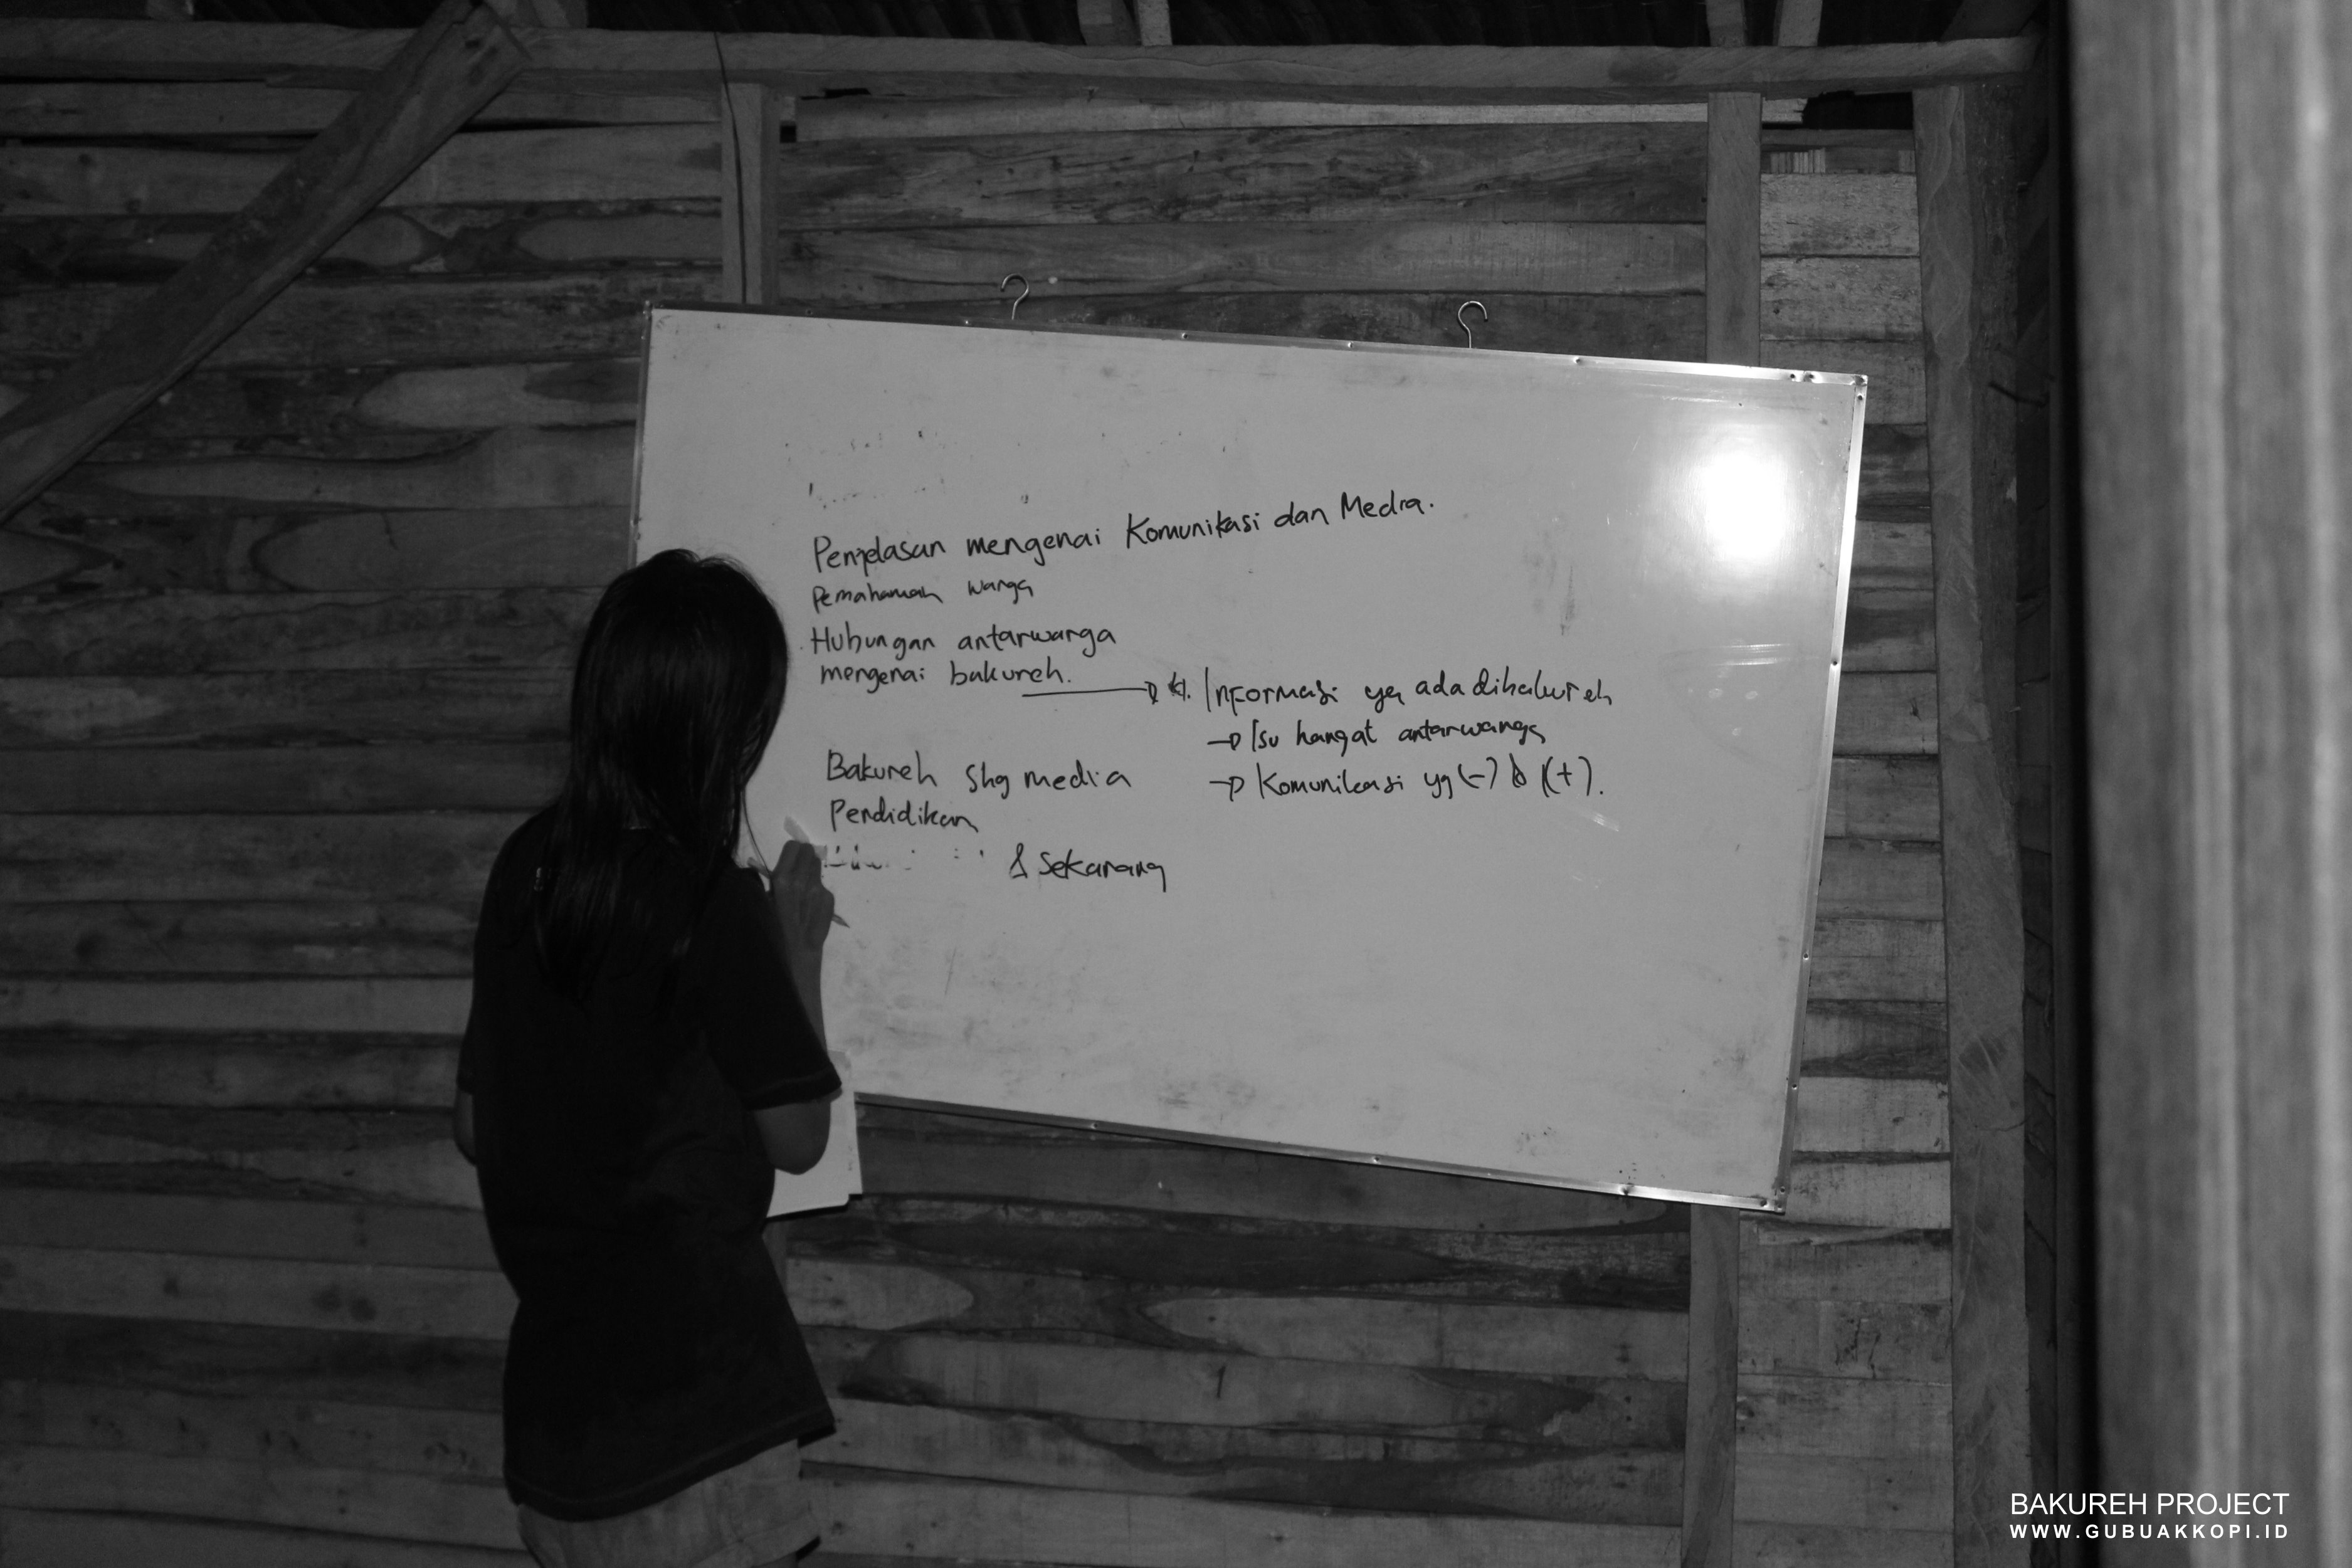 Penjelasan mengenai Komunikasi dan Media.
Pemahaman warga
Hubungan antarwarga
mengenai bakureh.
Informasi yg ada dibakureh
Isu hangat antarwarga
Komunikasi yg (-) & (+).
Bakureh sbg media
Pendidikan
& Sekarang
BAKUREH PROJECT
WWW.GUBUAKKOPI.ID